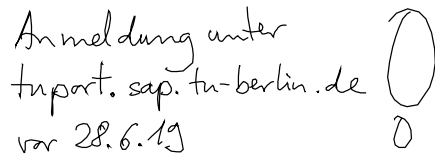 Anmeldung unter
tuport.sap.tu-berlin.de
vor 28.6.19
!